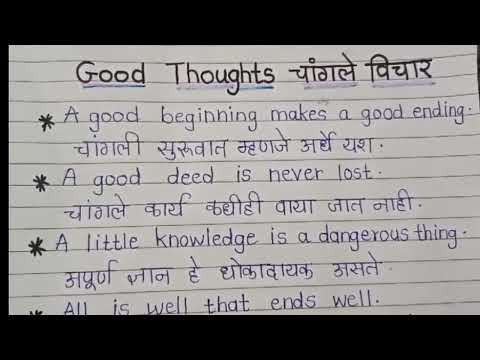 Good Thoughts चांगले विचार
* A good beginning makes a good ending.
चांगली सुरूवात म्हणजे अर्धे यश.
* A good deed is never lost.
चांगले कार्य कधीही वाया जात नाही.
* A little knowledge is a dangerous thing.
अपूर्ण ज्ञान हे धोकादायक असते.
* All is well that ends well.